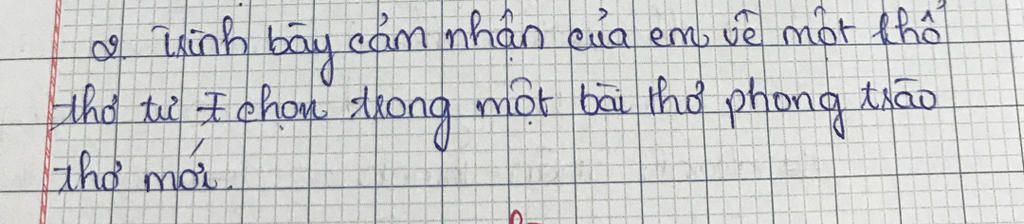 Trình bày cảm nhận của em về một khổ
thơ tự chọn trong một bài thơ phong trào
thơ mới.